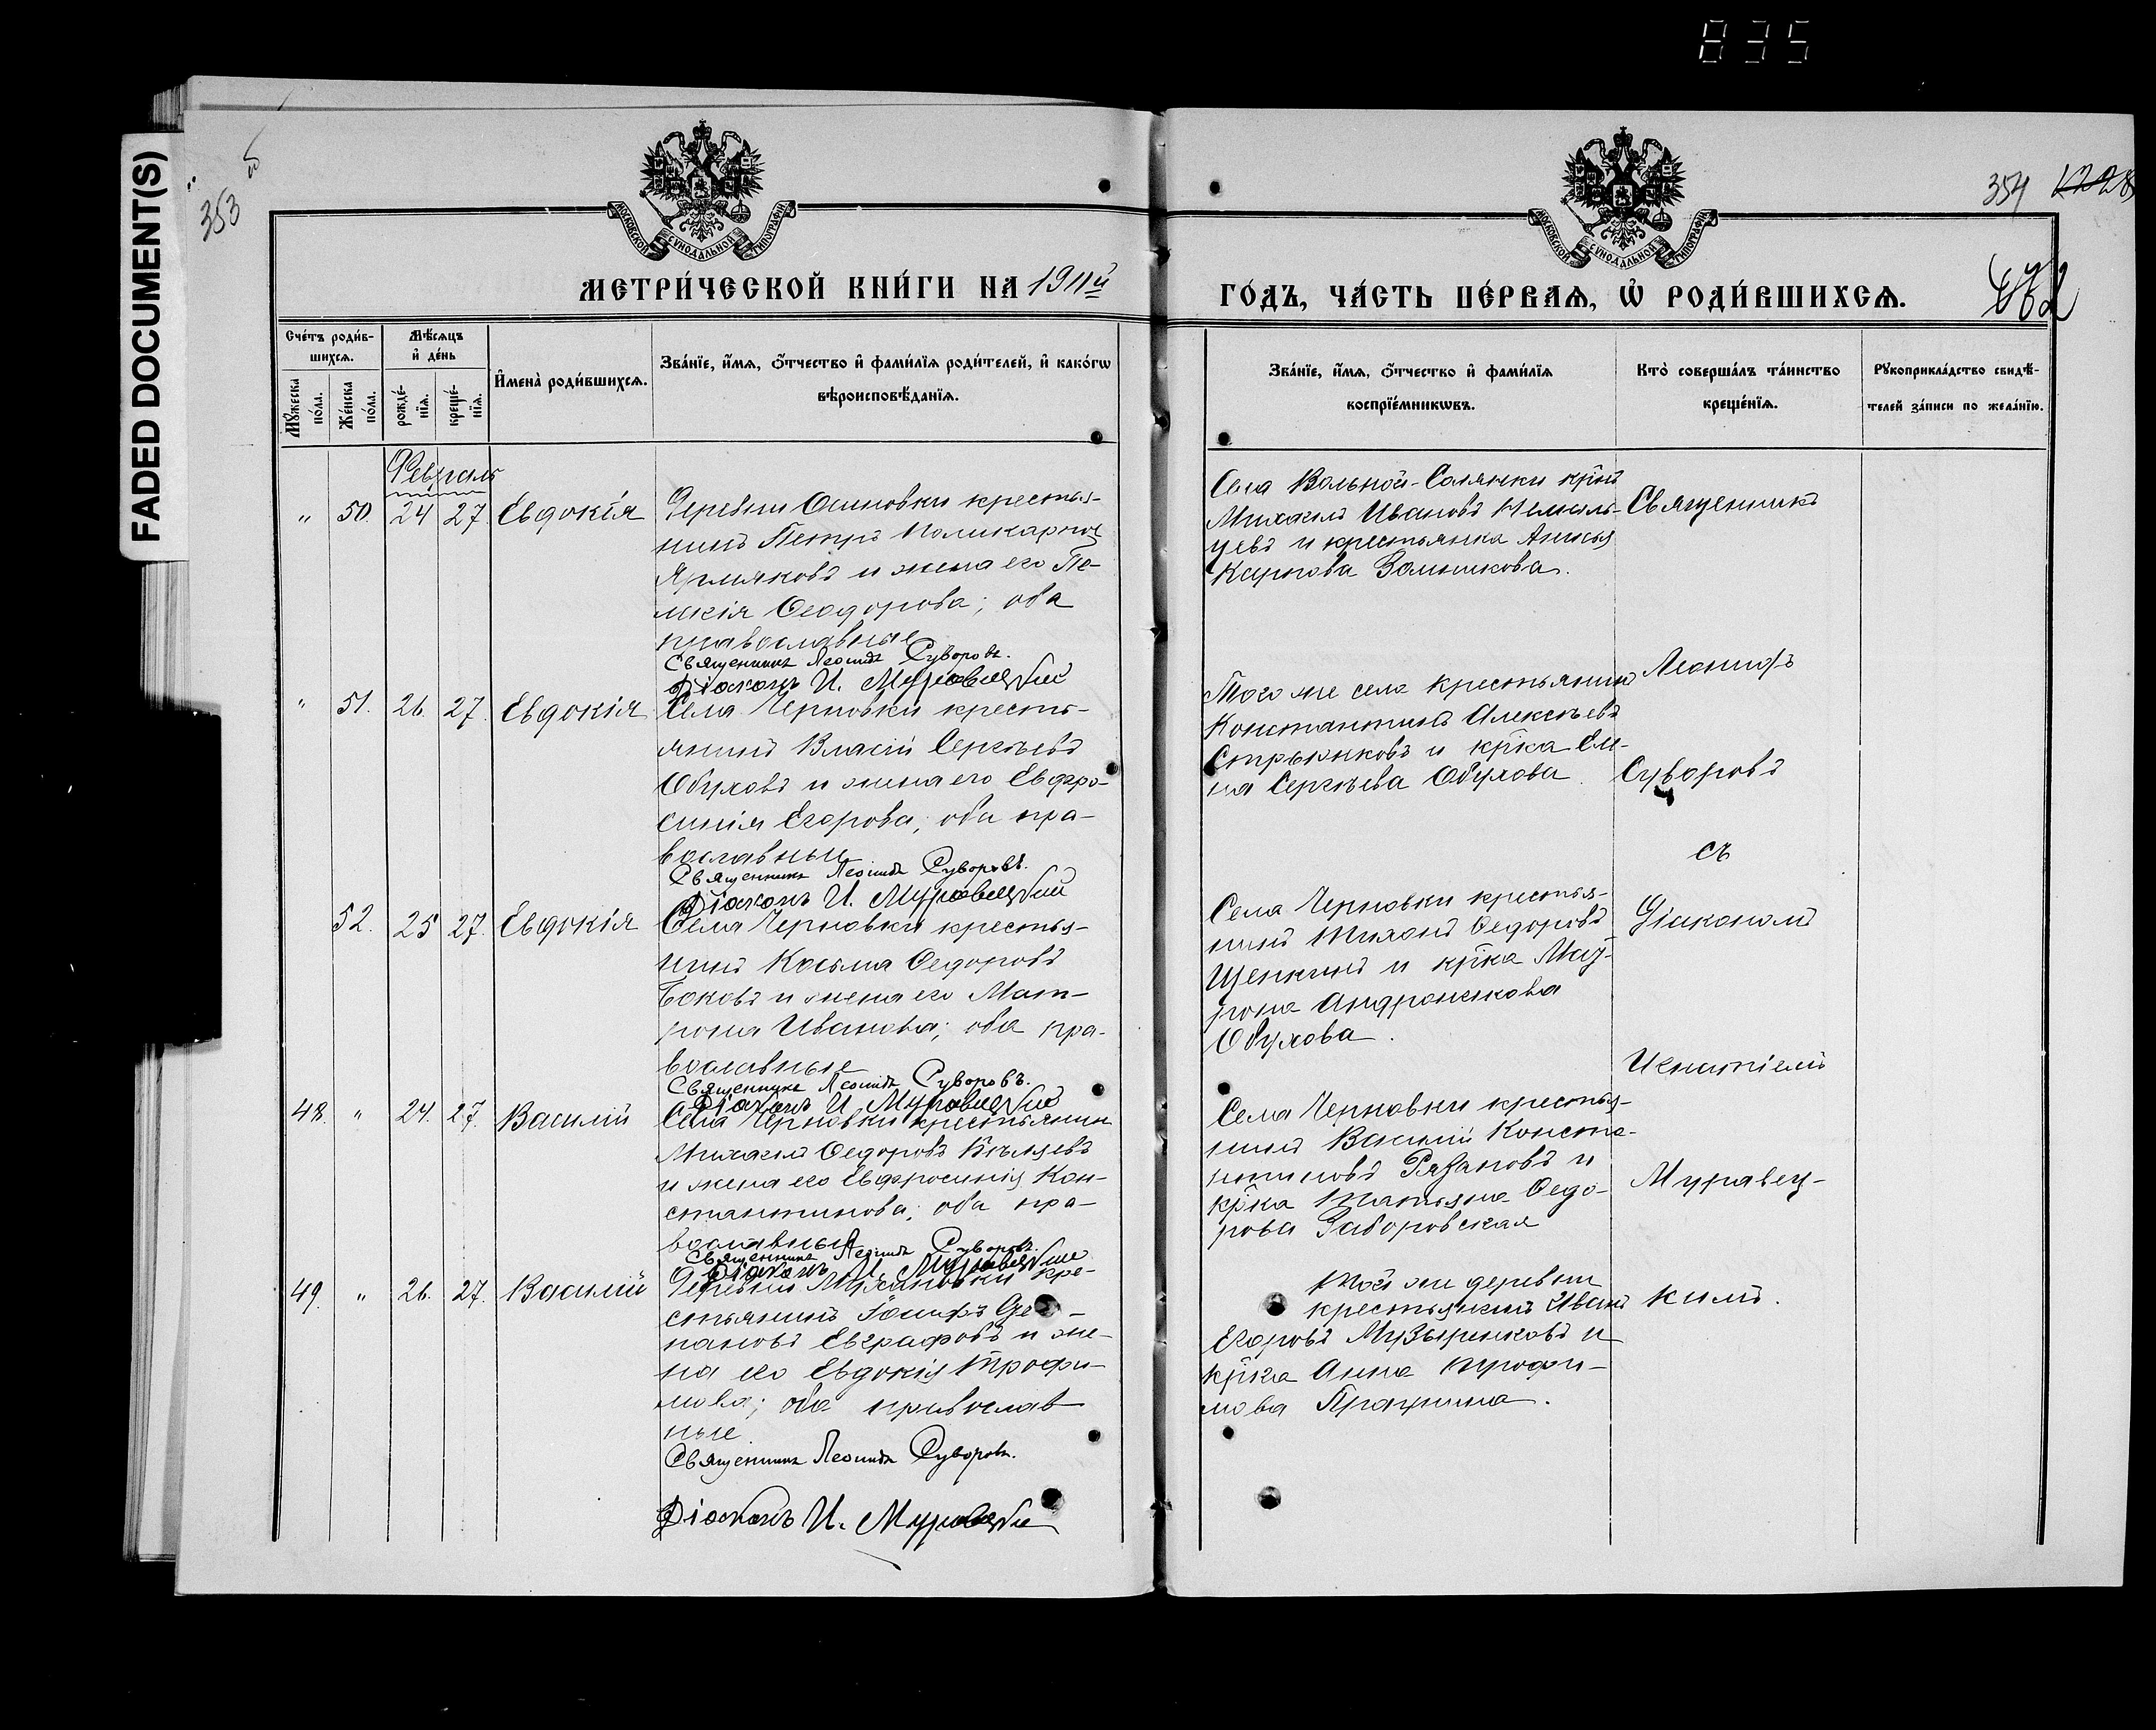 835
FADED DOCUMENT(S)
353
354
МОСКОВСКОЙ СУНОДАЛЬНОЙ ТИПОГРАФІИ
МОСКОВСКОЙ СУНОДАЛЬНОЙ ТИПОГРАФІИ
МЕТРИ́ЧЕСКОЙ КНИ́ГИ НА 1911й
ГО́ДЪ, ЧА́СТЬ ПЕ́РВАѦ, Ѡ҆ РОДИ́ВШИХСѦ.
Сче́тъ роди́в-
шихсѧ.
Мѣ́сѧцъ
и҆ де́нь
Мꙋ́жеска
по́ла.
Же́нска
по́ла.
рожде́-
нїѧ.
креще́-
нїѧ.
И҆мена̀ роди́вшихсѧ.
Зва́нїе, и҆́мѧ, ѻ҆́тчество и҆ фами́лїѧ роди́телей, и҆ како́гѡ
вѣроисповѣ́данїѧ.
Зва́нїе, и҆́мѧ, ѻ҆́тчество и҆ фами́лїѧ
воспрїе́мникѡвъ.
Кто̀ соверша́лъ та́инство
креще́нїѧ.
Рꙋкоприкла́дство свидѣ́-
телей за́писи по жела́нїю.
Февраль
" 50. 24 27 Евдокія
Деревни Осиновки крестья-
нинъ Петръ Поликарпов
Ярмяковъ и жена его Пе-
лагія Ѳеодорова; оба
православные
Священникъ Леонидъ Суворовъ.
Діаконъ И. Муравецкій
Села Вольной-Солянки кр-нъ
Михаилъ Ивановъ
и крестьянка Анисья
Карпова
Священникъ
" 51. 26. 27. Евдокія
Села Черновки кресть-
янинъ Власій Сергѣевъ
Обуховъ и жена его Евфро-
синія Егорова; оба пра-
вославные
Священникъ Леонидъ Суворовъ.
Діаконъ И. Муравецкій
Того же села крестьянинъ
Константинъ Алексѣевъ
Стрыжковъ и кр-ка Еле-
на Сергѣева Обухова.
Леонидъ
Суворовъ
съ
52. 25 27. Евдокія
Села Черновки крестья-
нинъ Косьма Ѳедоровъ
Боковъ и жена его Мат-
рона Иванова; оба пра-
вославные
Священникъ Леонидъ Суворовъ.
Діаконъ И. Муравецкій
Села Черновки крестья-
нинъ Тихонъ Ѳедоровъ
Щенкинъ и кр-ка Мат-
рона Андроникова
Обухова.
Діакономъ
Игнатіемъ
48. " 24. 27. Василій
Села Черновки крестьянинъ
Михаилъ Ѳедоровъ
и жена его Евфросинія Кон-
стантинова; оба пра-
вославные
Священникъ Леонидъ Суворовъ.
Діаконъ И. Муравецкій
Села Черновки крестья-
нинъ Василій Конста-
нтиновъ Рязановъ и
кр-ка Татьяна Ѳедо-
рова Заборовская
Муравец-
49. " 26. 27. Василій
Деревни Мухановки кре-
стьянинъ Іосифъ
Евграфовъ и же-
на его Евдокія Трофи-
мова; оба православ
ные
Священникъ Леонидъ Суворовъ.
Діаконъ И. Муравецкій
Той же деревни
крестьянинъ Иванъ
Егоровъ Музыренковъ и
кр-ка Анна Трофи-
мова
кимъ.